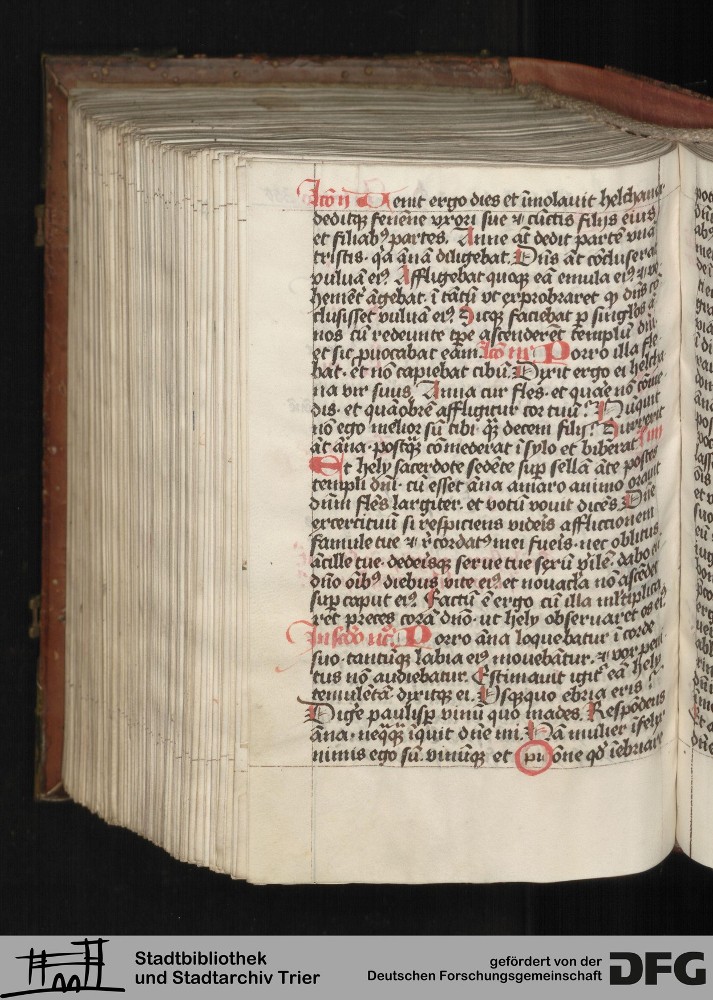 lco ij Uenit ergo dies et ymolauit helchana
deditqʒ fenēne vxori sue ⁊ cūctis filijs eius
et filiabꝰ partes. Anne aūt dedit partē vnā
tristis. qꝛ ānā diligebat. Dn̄s aūt cōcluserat
vuluā eiꝰ. Affligebat quoqʒ eā emula eiꝰ ⁊ ve
hemēt āgebat. ī tātū vt exprobraret qꝫ dn̄s cō
clusisset vuluā eiꝰ. Sicqʒ faciebat ꝑ singlos ā
nos cū redeunte tꝑe ascenderēt templū dn̄i.
et sic ꝓuocabat eām. lco iij. Porro illa fle
bat. et nō capiebat cibū. Dixit ergo ei helcha
na vir suus. Anna cur fles. et quare nō come
dis. et quāobrē affligitur cor tuū? Nūquit
nō ego melior sū tibi. qʒ̄ decem filij? Surrexit
āt āna. postqʒ̄ cōmederat ī sylo et biberat. iiij
Et hely sacerdote sedēte suꝑ sellā āte postes
templi dn̄i. cū esset āna amaro animo. orauit
dn̄m flēs largiter. et votū vouit dicēs. Dn̄e
exercituū si respiciens videīs afflictionem
famule tue ⁊ r̄cordatꝰ mei fueīs. nec oblitus
ācille tue. dederisqʒ serue tue sexū v̓ile. dabo eū
dn̄o oībꝰ diebus vite eiꝰ. et nouacla nō ascēdet
suꝑ caput eiꝰ. Factū ē ergo cū illa ml̓tiplica
rēt preces corā dn̄o. ut hely obseruaret os eiꝰ.
In scd̄o nc̄. Porro āna loquebatur ī corde
suo. tantūqʒ labia eiꝰ mouebātur. ⁊ vox peni
tus nō audiebatur. Estimauit igit̄ eā hely
temulētā. dixitqʒ ei. Usqʒquo ebria eris?
Dige paulisꝑ vinū quo mades. Respōdens
āna. neqʒqʒ īquit dn̄e mi. Nā mulier īfelix
nimis ego sū. vinūqʒ et om̄e qd̓ īebriare
Stadtbibliothek
und Stadtarchiv Trier
gefördert von der
Deutschen Forschungsgemeinschaft DFG